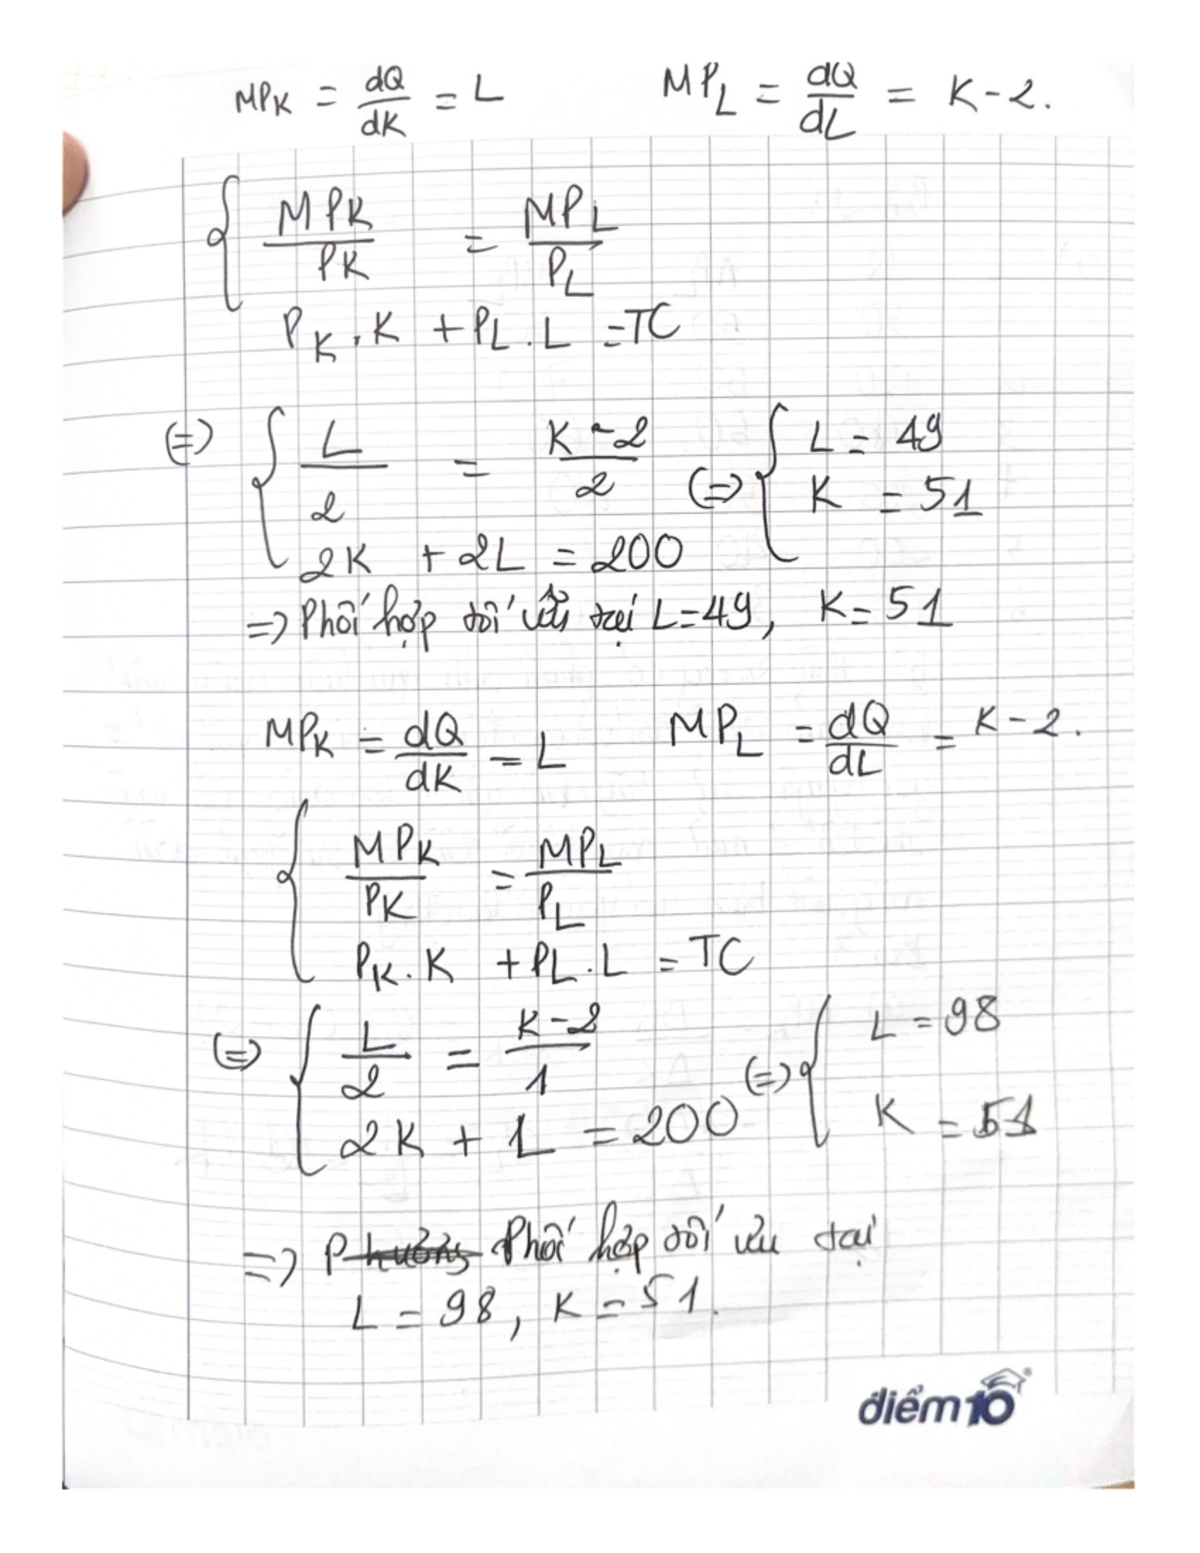 MPK = dQ/dK = L    MPL = dQ/dL = K - 2.
{ MPK/PK = MPL/PL
PK.K + PL.L = TC
(=) { L/2 = K-2/2 (=) { L = 49
K = 51
2K + 2L = 200
=> Phối hợp tối ưu tại L=49, K=51
MPK = dQ/dK = L    MPL = dQ/dL = K - 2.
{ MPK/PK = MPL/PL
PK.K + PL.L = TC
(=) { L/2 = K-2/1 (=) { L = 98
2K + 1L = 200    K = 51
=> Phối hợp tối ưu tại
L = 98, K = 51.
điểm10